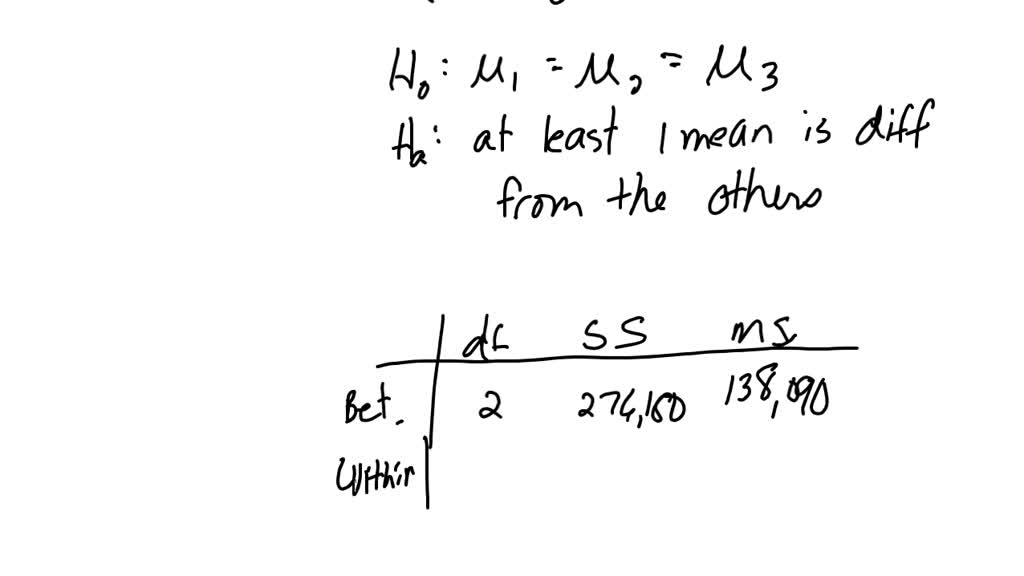 H₀: μ₁ = μ₂ = μ₃
Hₐ: at least 1 mean is diff
from the others
df SS MS
Bet. 2 138,090
Within